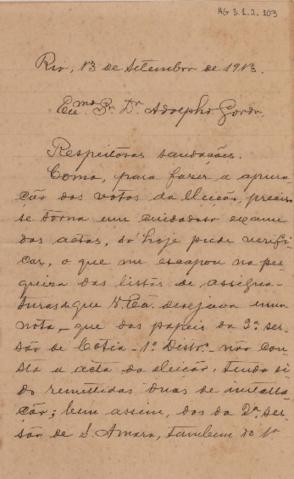 AG 3.1.2.103
Rio, 13 de Setembro de 1913.
Exmo Sr. Dr. Adolpho Gordo.
Respeitosas saudações.
Como, para fazer a apura-
ção dos votos da eleição, preciso
se torna um cuidadoso exame
das actas, só hoje pude verifi-
car, o que me escapou na pes-
quiza das listas de assigna-
turas de que V. Exa. desejava uma
nota, que dos papeis da 3ª sec-
são de Cotia - 1º Distro. não cons-
ta a acta da eleição, tendo si-
do remettidas duas de installa-
ção; bem assim, dos da 2ª sec-
são de S. Amaro, tambem do 1º